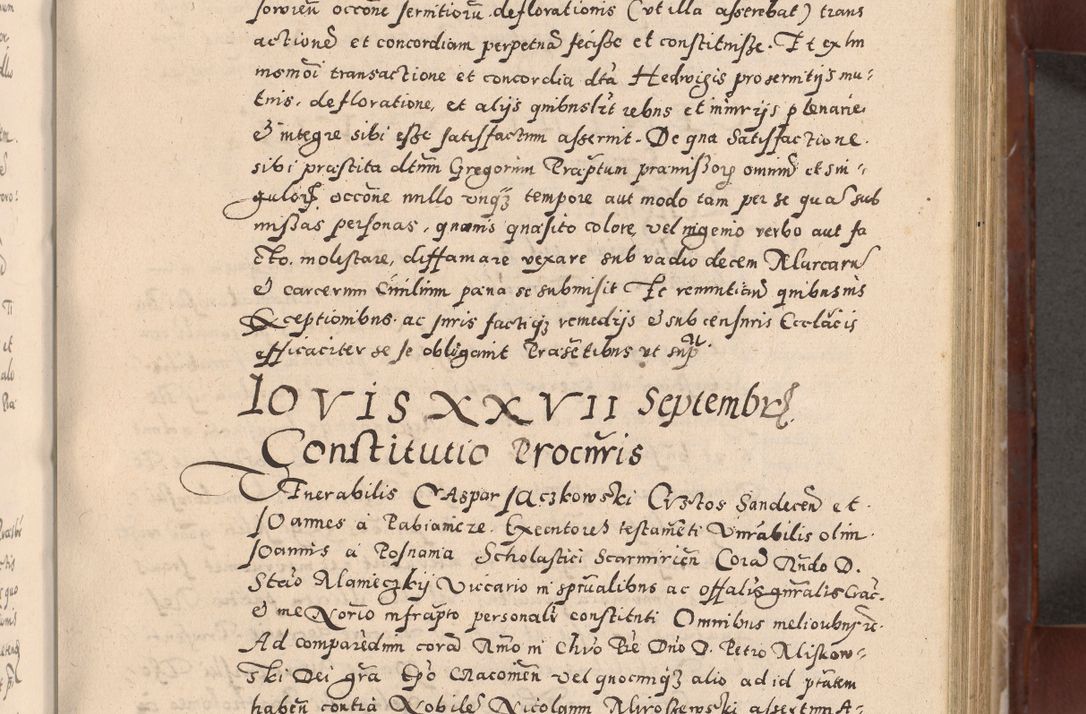 sororieñ occoñe servitiorũ deflorationis (ut illa asserebat) trans
actionẽ et concordiam perpetuã fecisse et constituisse. Et ex hu
iusmoi transactione et concordia dta Hedwigis pro servitijs mu-
tuis, defloratione, et alijs quibuslt rebus et iniurijs plenarie
& integre sibi esse satisfactum asseruit. De qua Satisfactione
sibi præstita dtum Gregorium Præptum præmissorz omniũ et sin-
gulorz occoñe nullo unqz tempore aut modo tam per se qua sub
missas personas, quouis quæsito colore, vel ingenio verbo aut fa
cto molestare, diffamare vexare sub vadio decem Marcarũ
& carcerum Civilium pæna se submisit Et renuntiañ quibusvis
Exceptionibus ac Juris factiqz remedijs & sub censuris Eccläcis
efficaciter se se obligavit Præsetibus ut sup
IOVIS XXVII Septembrz
Constitutio Procuris
Venerabilis CAspar JAczkowski Custos Sandeceñ et
JOannes à Pabianicze Executores testameti Vnrabilis olim
Joannis à Posnania Scholastici Scarmirieñ Corã Rndo D.
Stäo Mameczkij Viccario in sprualibus ac offalis gnralis Crac.
& me Norio infrapto personalr constituti Omnibus melioribus re.
Ad comparedum corã Rmo in Chro Pre Dno D. Petro Miskow-
ski Dei gra Epo Cracovien vel quocunqz alio ad id ptatem
habeñ contra Nobile Nicolaum Miroszewski assertum A-